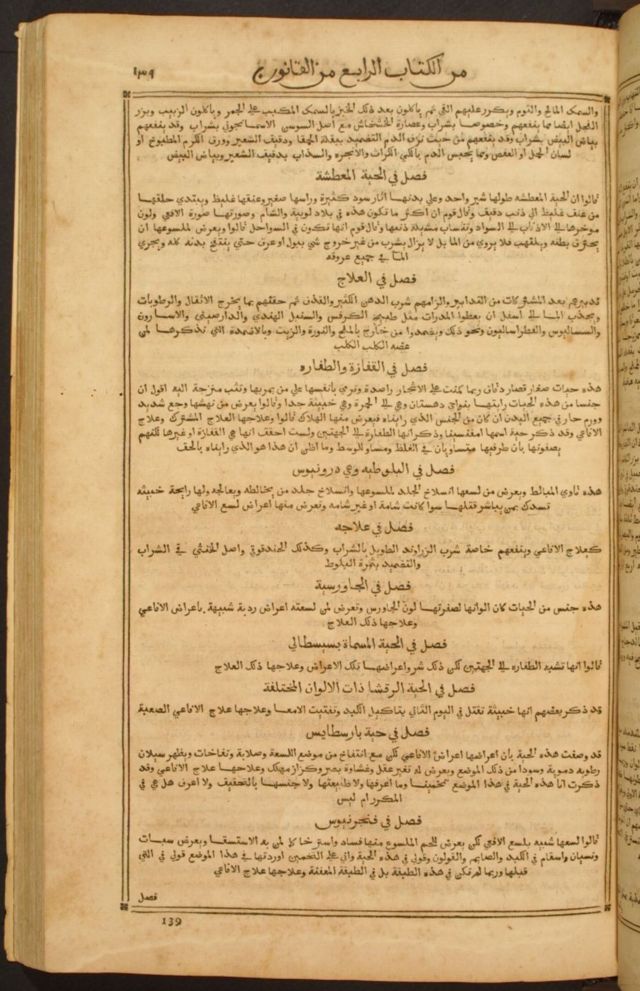 من الكتاب الرابع من القانون ١٣٩
والسمك المالح والثوم ويكرر عليهم القي ثم ياكلون بعد ذلك الخبز بالسمك المكبب على الجمر وياكلون الزبيب وبزر
الفجل ايضا مما ينفعهم وخصوصا بشراب وعصارة الخشخاش مع اصل السوسن الاسمانجوني بشراب وقد ينفعهم
بياض البيض بشراب وقد ينفعهم من حيث نزف الدم التضميد ببقلة الحمقا ودقيق الشعير وورق الكرم المطبوخ او
لسان الحمل او العفص ومما يحبس الدم باكلي الكراث والانجره والسذاب بدقيق الشعير وبياض البيض
فصل في الحية المعطشة
قالوا ان الحية المعطشه طولها شبر واحد وعلى بدنها اثار سود كثيرة وراسها صغير وعنقها غليظ ويبتدي خلقها
من عنق غليظ الى ذنب دقيق وقال قوم ان اكثر ما تكون هذه في بلاد لوبية والشام وصورتها صورة الافعي ولون
موخرها في الاذناب الى السواد وقال قوم انها تكون في السواحل قالوا ويعرض لملسوعها ان
يحترق بطنه ويلتهب فلا يروي من الما بل لا يزال يشرب من غير خروج شي ببول او عرق حتي ينتفخ بدنه كله ويجري
الما في جميع عروقه
فصل في العلاج
تدبيرهم بعد المشتركات من التدابير والزامهم شرب الدهن الكثير والقذف ثم حقنهم بما يخرج الاثقال والرطوبات
ويجذب الما الى اسفل ان يعطوا المدرات مثل طبيخ الكرفس والسنبل الهندي والدارصيني والاسارون
والسساليوس والفطراساليون ونحو ذلك ويضمدوا من خارج بالملح والنورة والزيت وبالاضمدة التي نذكرها لمن
عضه الكلب الكلب
فصل في القفازة والطفاره
هذه حيات صغار قصار دقاق ربما كمنت على الاشجار راصدة وترمي بانفسها على من يمر بها وتثب منزجة اليه اقول ان
جنسا من هذه الحيات رايتها بنواحي دهستان وهي الى الحمرة وهي خبيثة جدا وقالوا يعرض من نهشها وجع شديد
وورم حار في جميع البدن ان كان من الجنس الذي رايناه فيعرض منها الهلاك قالوا وعلاجها العلاج المشترك وعلاج
الافاعي وقد ذكر حية اسمها امفسبينا وذكر انها الطفارة الى الجهتين ولست احقق انها هي القفازة او غيرها لكنهم
يصفونها بان طرفيها متساويان في الغلظ ومساو للوسط وما اظن ان هذا هو الذي رايناه بالحق
فصل في البلوطيه وهي درونيوس
هذه تاوي المبالط ويعرض من لسعها انسلاخ الجلد لملسوعها وانسلاخ جلد من يخالطه ويعالجه ولها رايحة خبيثه
تسدك بمن يباشر قتلها سوا كانت شامة او غير شامه وتعرض منها اعراض لسع الافاعي
فصل في علاجه
كعلاج الافاعي وينفعهم خاصة شرب الزراوند الطويل بالشراب وكذلك الحندقوقي واصل الخنثي في الشراب
والتضميد بثمرة البلوط
فصل في الجاورسية
هذه جنس من الحيات كان الوانها لصفرتها لون الجاورس وتعرض لمن لسعته اعراض ردية شبيهة باعراض الافاعي
وعلاجها ذلك العلاج
فصل في الحية المسماة بسبسطالي
قالوا انها تشبه الطفاره الى الجهتين لكن ذلك شر واعراضها تلك الاعراض وعلاجها ذلك العلاج
فصل في الحية الرقشا ذات الالوان المختلفة
قد ذكر بعضهم انها خبيثة تقتل في اليوم الثاني بتاكيل الكبد وتفتيت الامعا وعلاجها علاج الافاعي الصعبة
فصل في حية بارسطايس
قد وصفت هذه الحية بان اعراضها اعراض الافاعي لكن مع انتفاخ من موضع اللسعة وصلابة ونفاخات ويظهر سيلان
رطوبة دموية وسودا من ذلك الموضع ويعرض له تغير عقل وغشاوة بصر وكزاز مهلك وعلاجها علاج الافاعي وقد
ذكرت انا هذه الحية في هذا الموضع وما اعرفها ولا طبيعتها ولا جنسها بالتحقيق ولا اعرف هل هي في
المكرر ام ليس
فصل في فنجرنيوس
قالوا لسعها شبيه بلسع الافعي لكن يعرض للحم الملسوع منها فساد واسترخا كما لمن به الاستسقا ويعرض سبات
ونسيان واسقام في الكبد والصايم والقولون وقولي في هذه الحية واني على التخمين اوردتها في هذا الموضع قولي في التي
قبلها وربما لم تكن في هذه الطبقة بل في الطبقة المعفنة وعلاجها علاج الافاعي
فصل
139